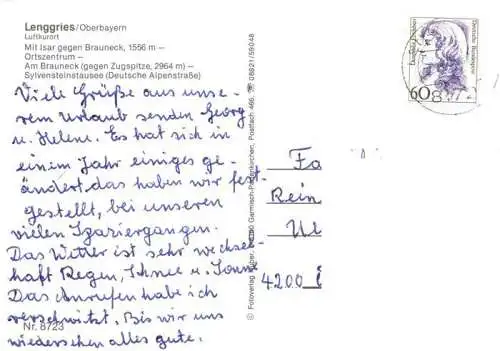 Lenggries/Oberbayern
Luftkurort
Mit Isar gegen Brauneck, 1556 m –
Ortszentrum –
Am Brauneck (gegen Zugspitze, 2964 m) –
Sylvensteinstausee (Deutsche Alpenstraße)
Viele Grüße aus unse-
rem Urlaub senden Georg
u. Helene. Es hat sich
in einem Jahr einiges ge-
ändert, das haben wir fest-
gestellt, bei unseren
vielen Spaziergängen.
Das Wetter ist sehr wechsel-
haft Regen, Schnee u. Sonne
Das Anrufen habe ich
verschwitzt. Bis wir uns
wiedersehen alles gute.
Nr. 8723
Garmisch-Partenkirchen, Postfach 466, ☏ 08821/59048
© Fotoverlag Huber,
Deutsche Bundespost
60
Fa
Rein
Ul
4200